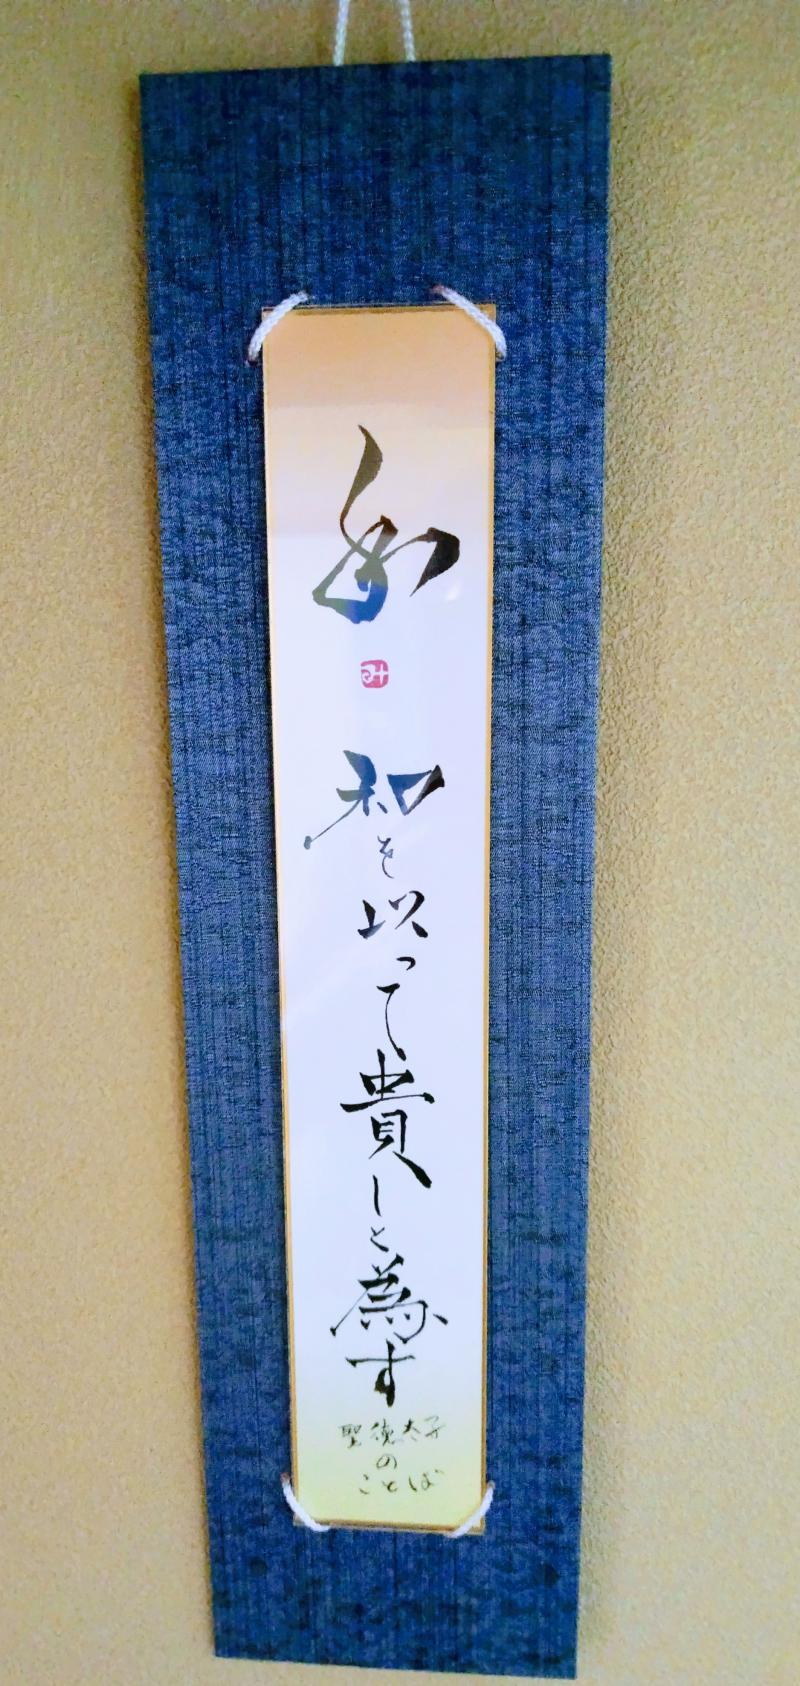 和
和を以って貴しと為す
聖徳太子
の
ことば